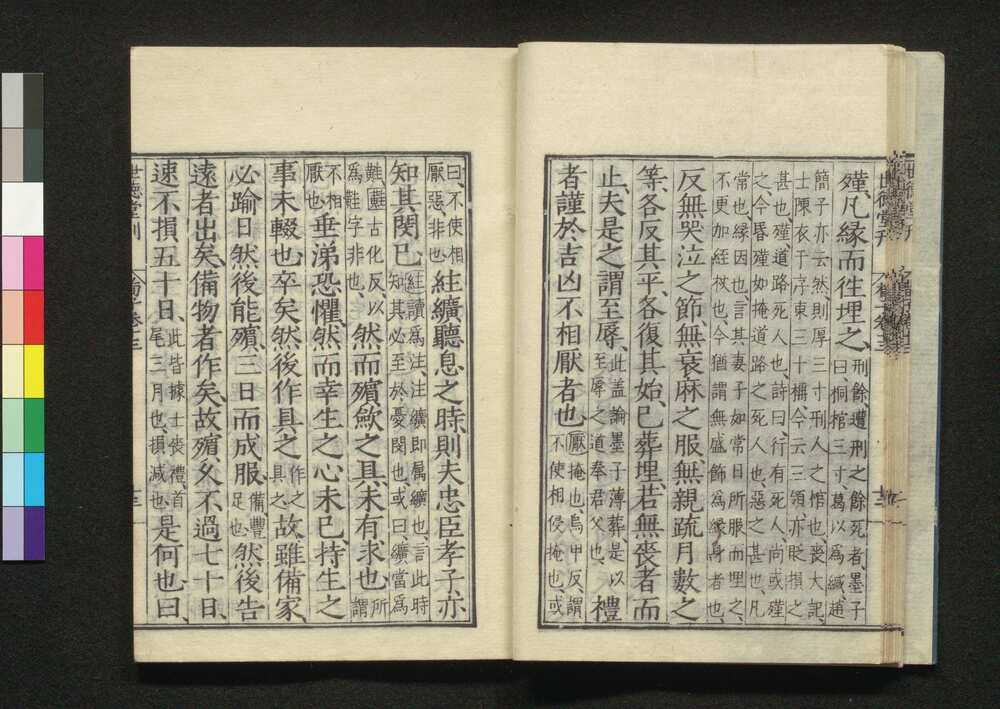 殣凡縁而徃埋之刑餘遭刑之餘死者墨子
曰桐棺三寸葛以爲緘趙
簡子亦云然則厚三寸刑人之棺也喪大記
士陳衣于序東三十稱今云三領亦貶損之
甚也殣道路死人也詩曰行有死人尚或殣
之今昏殣如掩道路之死人也惡之甚也凡
常也縁因也言其妻子如常日所服而埋之
不更加絰杖也今猶謂無盛飾爲縁身者也
反無哭泣之節無衰麻之服無親疏月數之
等各反其平各復其始已葬埋若無喪者而
止夫是之謂至辱此盖論墨子薄葬是以
至辱之道奉君父也禮
者謹於吉凶不相厭者也厭掩也烏甲反謂
不使相侵掩也或
曰不使相
厭惡非也紸纊聽息之時則夫忠臣孝子亦
知其閔已紸讀爲注注纊即属纊也言此時
知其必至於憂閔也或曰纊當爲
黈黈古化反以
爲黈字非也然而殯歛之具未有求也所
謂
不相
厭也垂涕恐懼然而幸生之心未已持生之
事未輟也卒矣然後作具之作之
具之故雖備家
必踰日然後能殯三日而成服備豐
足也然後告
遠者出矣備物者作矣故殯久不過七十日
速不損五十日此皆據士喪禮首
尾三月也損減也是何也曰
世德堂刊